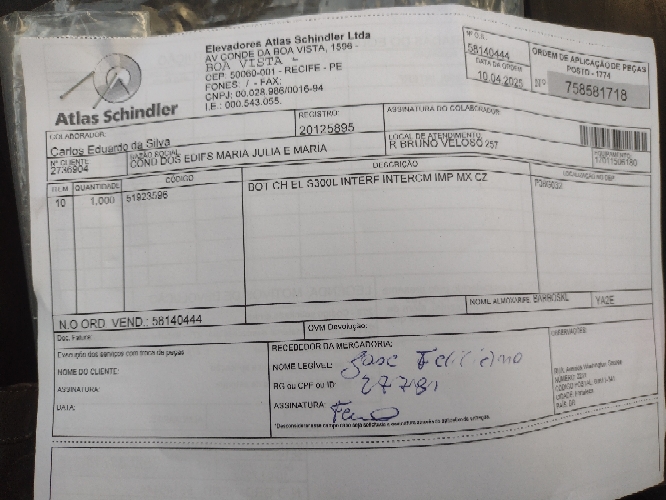 Elevadores Atlas Schindler Ltda
AV CONDE DA BOA VISTA, 1596 -
BOA VISTA -
CEP: 50060-001 - RECIFE - PE
FONES: / - FAX:
CNPJ: 00.028.986/0016-94
I.E.: 000.543.055.
Atlas Schindler
Nº O.S.
58140444
DATA DA ORDEM
10.04.2025
ORDEM DE APLICAÇÃO DE PEÇAS
POSTO - 1774
Nº 758581718
COLABORADOR:
Carlos Eduardo da Silva
REGISTRO:
20125895
ASSINATURA DO COLABORADOR:
Nº CLIENTE:
2736904
RAZÃO SOCIAL
COND DOS EDIFS MARIA JULIA E MARIA
LOCAL DE ATENDIMENTO:
R BRUNO VELOSO 257
EQUIPAMENTO:
ITEM QUANTIDADE CÓDIGO DESCRIÇÃO
10 1,000 51923596 BOT CH EL S300L INTERF INTERCM IMP MX CZ
NOME ALMOXARIFE: YA2E
N.O ORD. VEND.: 58140444
Doc. Fatura:
OVM Devolução:
Execução dos serviços com troca de peças
NOME DO CLIENTE:
ASSINATURA:
DATA:
RECEBEDOR DA MERCADORIA:
NOME LEGÍVEL: Jose Feliciano
RG ou CPF ou ID:
ASSINATURA:
OBSERVAÇÕES: